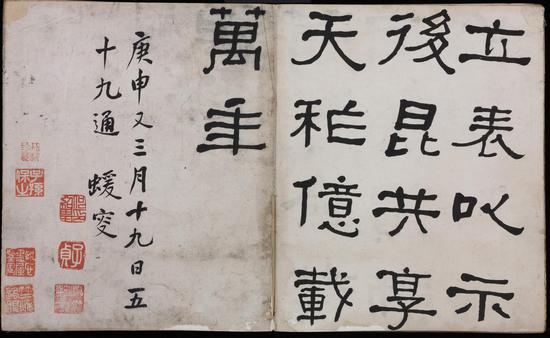 立表以示
後昆共享
天祚億載
萬年
庚申又三月十九日五
十九通 蝯叟
子孫保之